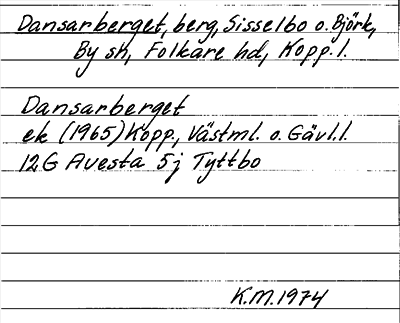 Dansarberget, berg, Sisselbo o. Björk,
By sn, Folkare hd, Kopp. l.
Dansarberget
ek (1965) Kopp., Västml. o. Gävl. l.
12G Avesta 5j Tyttbo
K.M. 1974